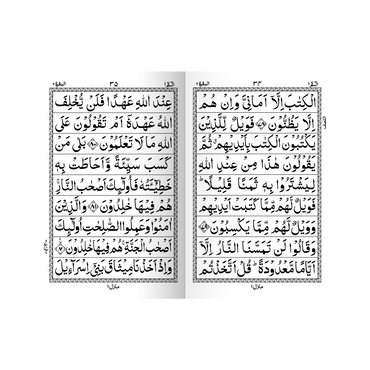 البقرة ٢
٣٤
الٓمّٓ ١
الْكِتٰبَ اِلَّاۤ اَمَانِیَّ وَاِنْ هُمْ
اِلَّا یَظُنُّوْنَ ﴿۷۸﴾ فَوَیْلٌ لِّلَّذِیْنَ
یَكْتُبُوْنَ الْكِتٰبَ بِاَیْدِیْهِمْ ۗ ثُمَّ
یَقُوْلُوْنَ هٰذَا مِنْ عِنْدِ اللّٰهِ
لِیَشْتَرُوْا بِهٖ ثَمَنًا قَلِیْلًا ؕ
فَوَیْلٌ لَّهُمْ مِّمَّا كَتَبَتْ اَیْدِیْهِمْ
وَوَیْلٌ لَّهُمْ مِّمَّا یَكْسِبُوْنَ ﴿۷۹﴾
وَقَالُوْا لَنْ تَمَسَّنَا النَّارُ اِلَّاۤ
اَیَّامًا مَّعْدُوْدَةً ؕ قُلْ اَتَّخَذْتُمْ
منزل ١
البقرة ٢
٣٥
الٓمّٓ ١
عِنْدَ اللّٰهِ عَهْدًا فَلَنْ یُّخْلِفَ
اللّٰهُ عَهْدَهٗۤ اَمْ تَقُوْلُوْنَ عَلَی
اللّٰهِ مَا لَا تَعْلَمُوْنَ ﴿۸۰﴾ بَلٰی مَنْ
كَسَبَ سَیِّئَةً وَّاَحَاطَتْ بِهٖ
خَطِیْٓـَٔتُهٗ فَاُولٰٓئِكَ اَصْحٰبُ النَّارِ ۚ
هُمْ فِیْهَا خٰلِدُوْنَ ﴿۸۱﴾ وَالَّذِیْنَ
اٰمَنُوْا وَعَمِلُوا الصّٰلِحٰتِ اُولٰٓئِكَ
اَصْحٰبُ الْجَنَّةِ ۚ هُمْ فِیْهَا خٰلِدُوْنَ ﴿۸۲﴾
وَاِذْ اَخَذْنَا مِیْثَاقَ بَنِیْۤ اِسْرَآءِیْلَ
منزل ١